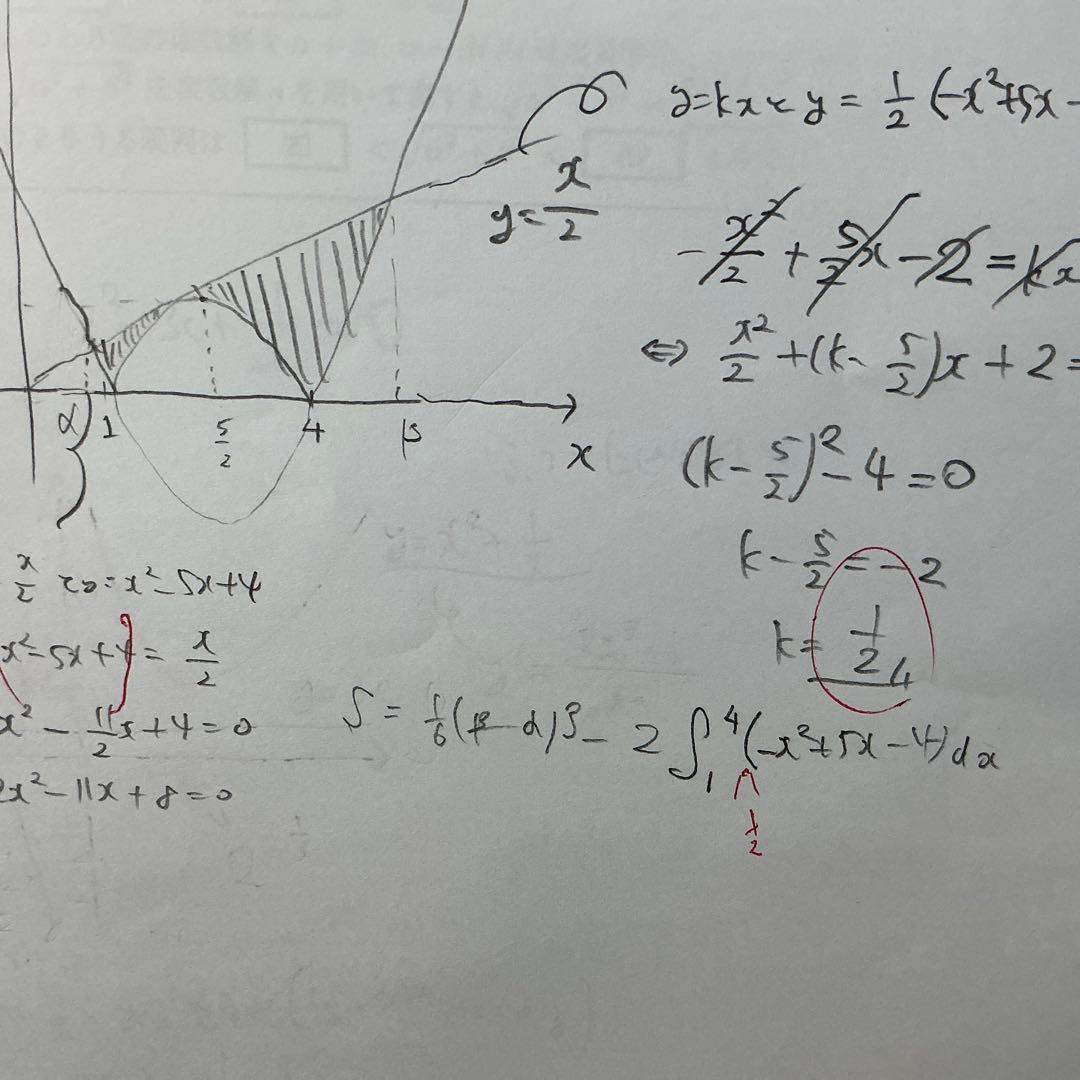 y=kxとy = 1/2 (-x²+5x-
y= x/2
-x²/2 + 5/2x - 2 = kx
⇔ x²/2 + (k- 5/2)x + 2 =
α 1 5/2 4 β
x
(k- 5/2)² - 4 = 0
k- 5/2 = -2
k= 1/2
x/2 とy=x²-5x+4
x²-5x+4 = x/2
x² - 11/2x+4=0
2x²-11x+8=0
S = 1/6(β-α)³ - 2∫₁⁴(-x²+5x-4)dx
1/2